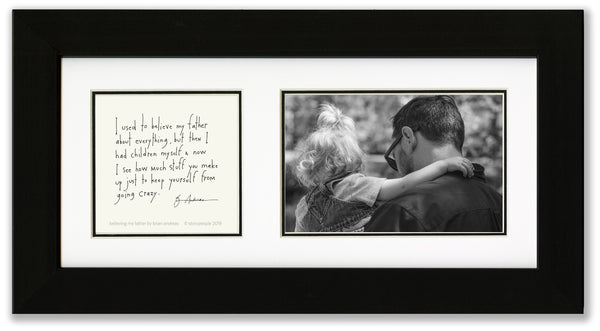 I used to believe my father
about everything, but then I
had children myself & now
I see how much stuff you make
up just to keep yourself from
going crazy.
Brian Andreas
believing my father by brian andreas © storypeople 2019